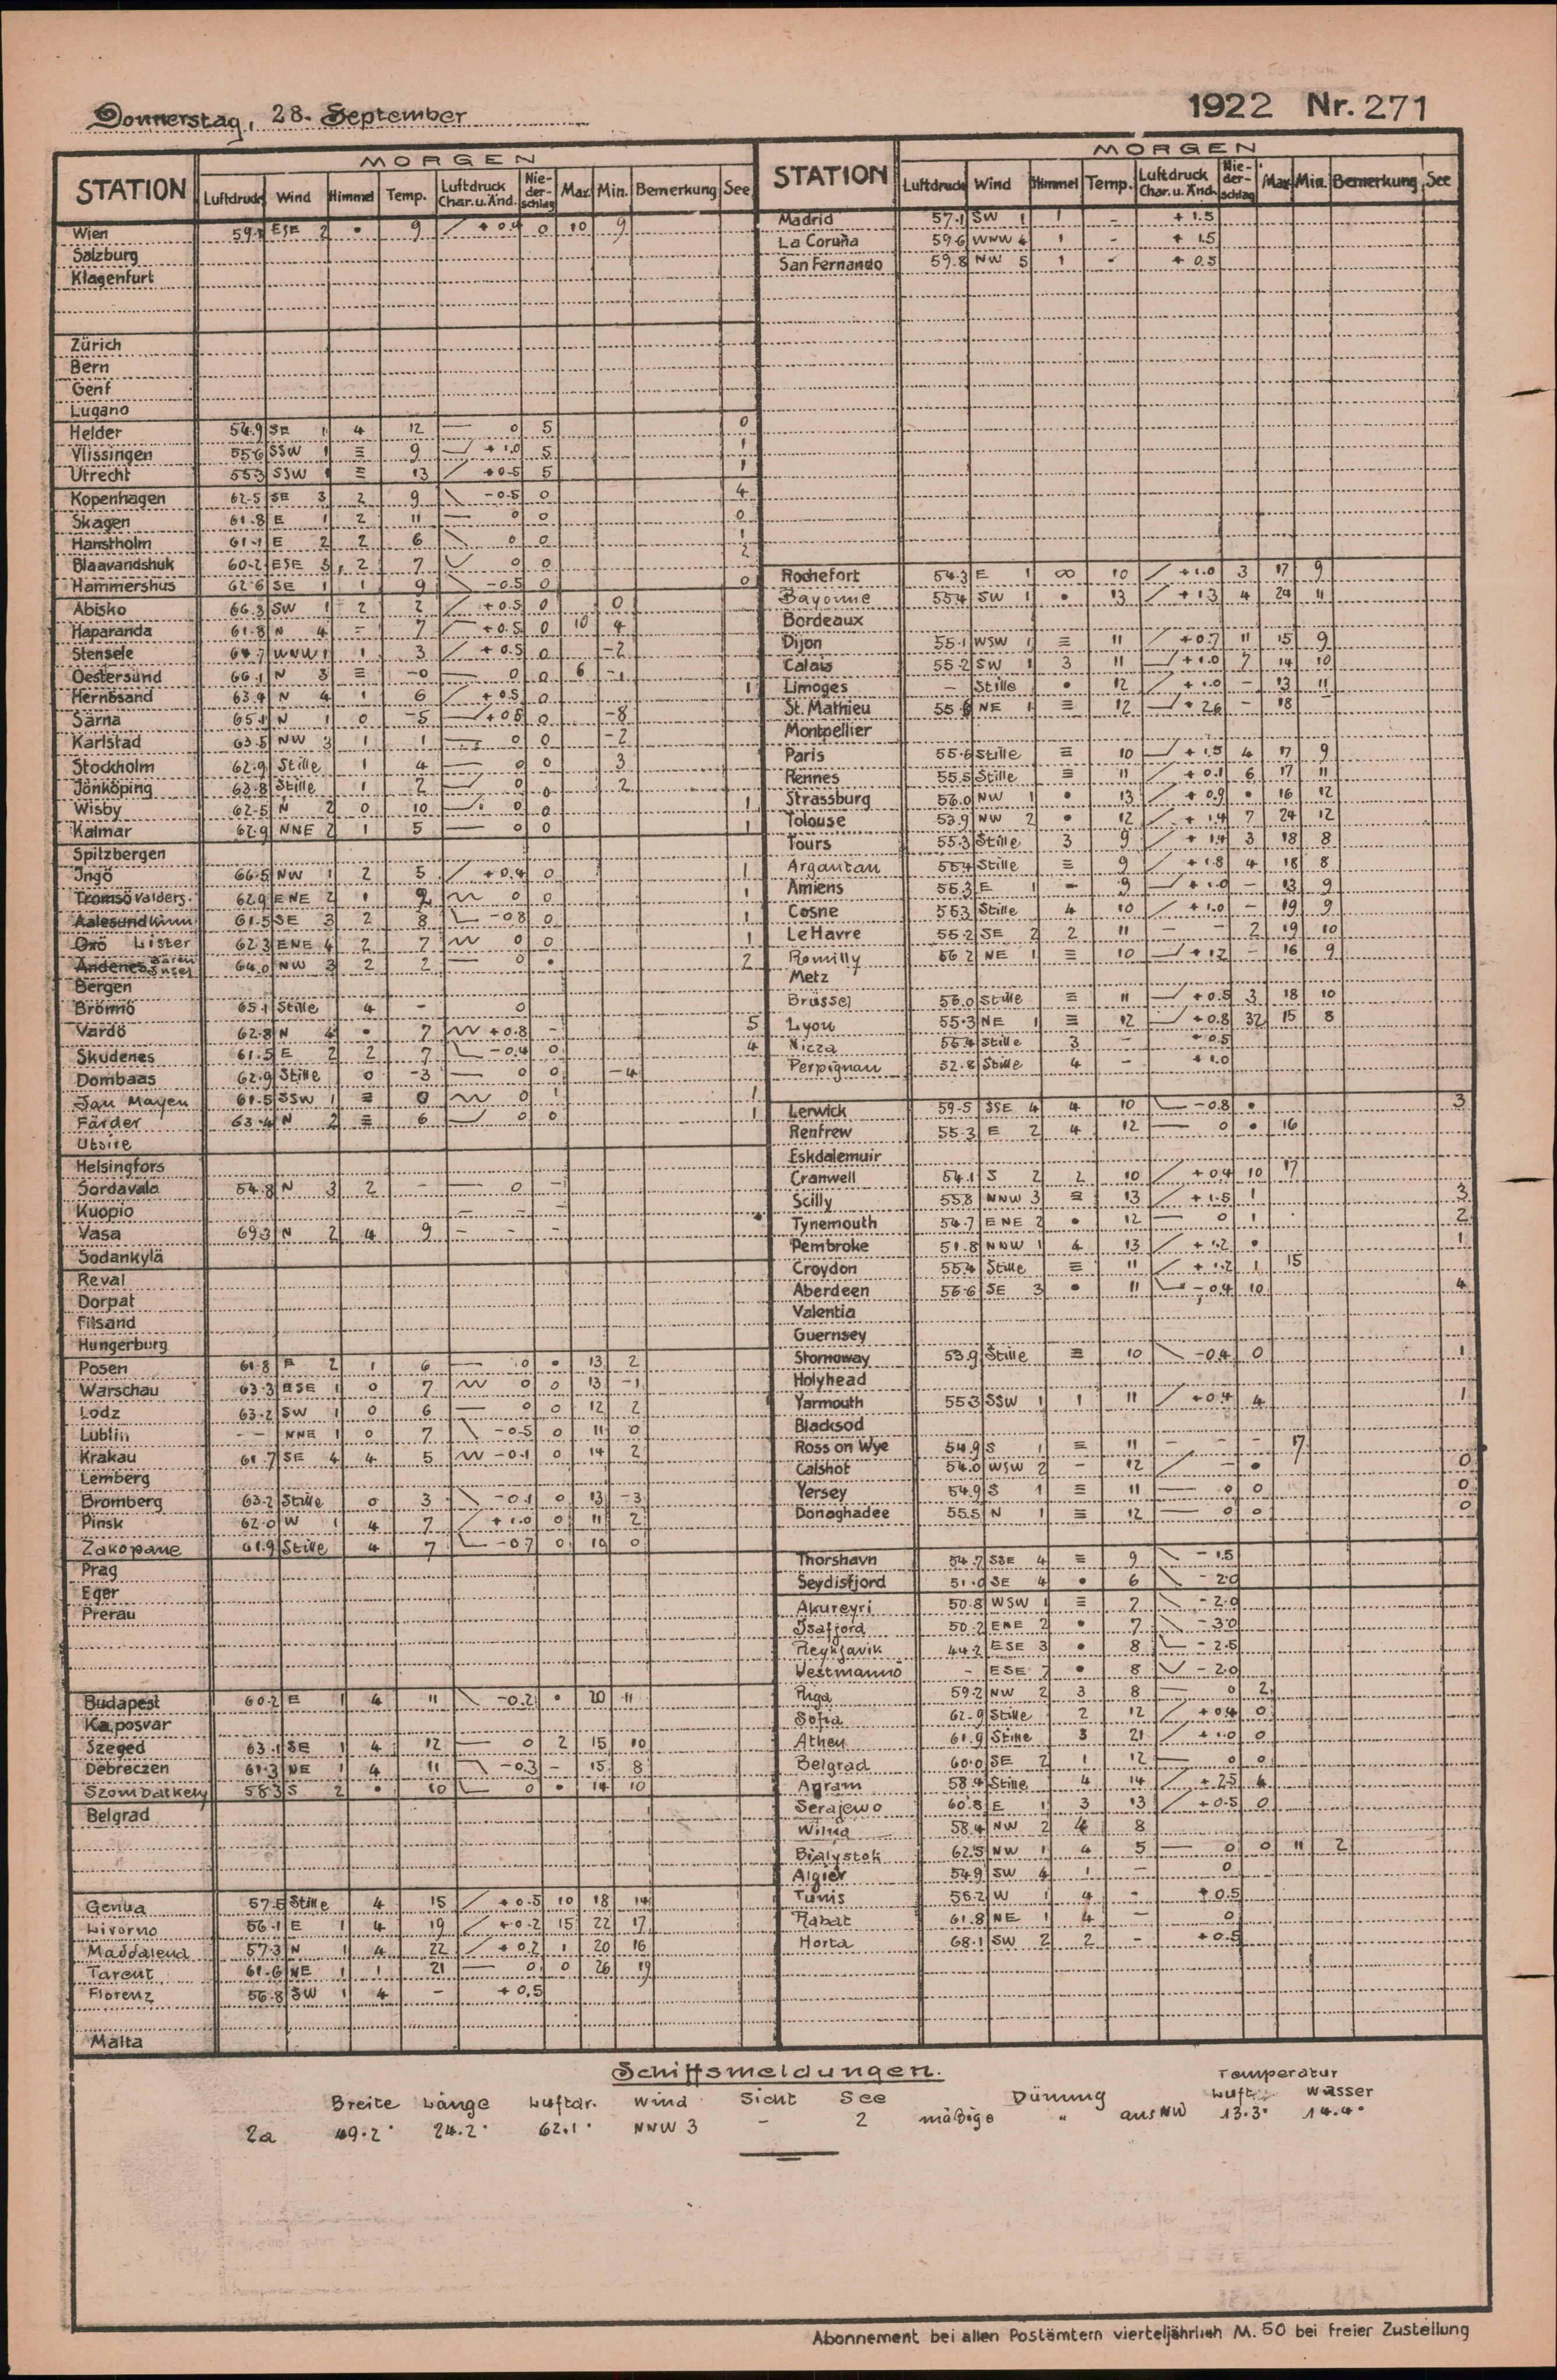 Donnerstag, 28. September
1922 Nr. 271
MORGEN
STATION Luftdruck Wind Himmel Temp. Luftdruck Char. u. Änd. Nie-der-schlag Max. Min. Bemerkung See
Wien ESE 2 • 9 + 0.4 0 10 9
Salzburg
Klagenfurt
Zürich
Bern
Genf
Lugano
Helder 54.9 SE 1 4 12 — 0 5 0
Vlissingen 55.6 SSW 1 ≡ 9 + 1.0 5 1
Utrecht 55.3 SSW 1 ≡ 13 + 0.5 5 1
Kopenhagen 62.5 SE 3 2 9 - 0.5 0 4
Skagen 61.8 E 1 2 11 — 0 0 0
Hanstholm 61.1 E 2 2 6 0 0 1
Blaavandshuk 60.2 ESE 3 2 7 0 0 2
Hammershus 62.6 SE 1 1 9 - 0.5 0 0
Abisko 66.3 SW 1 2 2 + 0.5 0 0
Haparanda 61.8 N 4 - 7 + 0.5 0 10 4
Stensele 64.7 WNW 1 1 3 + 0.5 0 -2
Oestersund 66.1 N 3 ≡ -0 — 0 0 6 -1
Hernösand 63.4 N 4 1 6 + 0.5 0 1
Särna 65.1 N 1 0 -5 + 0.5 0 -8
Karlstad 63.5 NW 3 1 1 0 0 -2
Stockholm 62.9 Stille 1 4 — 0 0 3
Jönköping 63.8 Stille 1 2 0 0 2
Wisby 62.5 N 2 0 10 0 0 1
Kalmar 62.9 NNE 2 1 5 — 0 0 1
Spitzbergen
Ingö 66.5 NW 1 2 5 + 0.4 0 1
Tromsö Valders. 62.9 ENE 2 1 2 0 0 1
Aalesund Kinn 61.5 SE 3 2 8 - 0.8 0 1
Oxö Lister 62.3 ENE 4 2 7 0 0 1
Andenes Bären Insel 64.0 NW 3 2 2 — 0 • 2
Bergen
Brönnö 65.1 Stille 4 - 0
Vardö 62.8 N 4 • 7 + 0.8 - 5
Skudenes 61.5 E 2 2 7 - 0.4 0 4
Dombaas 62.9 Stille 0 -3 — 0 0 -4
Jan Mayen 61.5 SSW 1 ≡ 0 0 1 1
Färder 63.4 N 2 ≡ 6 0 0 1
Utsire
Helsingfors
Sordavala 54.8 N 3 2 - — 0 -
Kuopio - - -
Vasa 69.3 N 2 4 9 - - -
Sodankylä
Reval
Dorpat
Filsand
Hungerburg
Posen 61.8 E 2 1 6 — 0 • 13 2
Warschau 63.3 ESE 1 0 7 0 0 13 -1
Lodz 63.2 SW 1 0 6 — 0 0 12 2
Lublin - - NNE 1 0 7 - 0.5 0 11 0
Krakau 61.7 SE 4 4 5 - 0.1 0 14 2
Lemberg
Bromberg 63.2 Stille 0 3 - 0.1 0 13 -3
Pinsk 62.0 W 1 4 7 + 1.0 0 11 2
Zakopane 61.9 Stille 4 7 - 0.7 0 10 0
Prag
Eger
Prerau
Budapest 60.2 E 1 4 11 - 0.2 • 20 11
Kaposvar
Szeged 63.1 SE 1 4 12 — 0 2 15 10
Debreczen 61.3 NE 1 4 11 - 0.3 - 15 8
Szombatkely 58.3 S 2 • 10 0 • 14 10
Belgrad
Genua 57.5 Stille 4 15 + 0.5 10 18 14
Livorno 56.1 E 1 4 19 + 0.2 15 22 17
Maddalena 57.3 N 1 4 22 + 0.2 1 20 16
Tarent 61.6 NE 1 1 21 — 0 0 26 19
Florenz 56.8 SW 1 4 - + 0.5
Malta
MORGEN
STATION Luftdruck Wind Himmel Temp. Luftdruck Char. u. Änd. Nie-der-schlag Max. Min. Bemerkung See
Madrid 57.1 SW 1 1 - + 1.5
La Coruña 59.6 WNW 4 1 - + 1.5
San Fernando 59.8 NW 5 1 - + 0.5
Rochefort 54.3 E 1 ∞ 10 + 1.0 3 17 9
Bayonne 55.4 SW 1 • 13 + 1.3 4 24 11
Bordeaux
Dijon 55.1 WSW 1 ≡ 11 + 0.7 11 15 9
Calais 55.2 SW 1 3 11 + 1.0 7 14 10
Limoges — Stille • 12 + 1.0 - 13 11
St. Mathieu NE 1 ≡ 12 + 2.6 - 18 —
Montpellier
Paris 55.6 Stille ≡ 10 + 1.5 4 17 9
Rennes 55.5 Stille ≡ 11 + 0.1 6 17 11
Strassburg 56.0 NW 1 • 13 + 0.9 • 16 12
Tolouse 53.9 NW 2 • 12 + 1.4 7 24 12
Tours 55.3 Stille 3 9 + 1.4 3 18 8
Argantan 55.4 Stille ≡ 9 + 1.8 4 18 8
Amiens 55.3 E 1 = 9 + 1.0 - 13 9
Cosne 55.3 Stille 4 10 + 1.0 - 19 9
Le Havre 55.2 SE 2 2 11 - - 2 19 10
Romilly 56.2 NE 1 ≡ 10 + 1.2 - 16 9
Metz
Brüssel 56.0 Stille ≡ 11 + 0.5 3 18 10
Lyon 55.3 NE 1 ≡ 12 + 0.8 32 15 8
Nizza 55.4 Stille 3 - + 0.5
Perpignan 52.8 Stille 4 - + 1.0
Lerwick 59.5 SSE 4 4 10 - 0.8 • 3
Renfrew 55.3 E 2 4 12 — 0 • 16
Eskdalemuir
Cranwell 54.1 S 2 2 10 + 0.4 10 17
Scilly 55.8 NNW 3 ≡ 13 + 1.5 1 3
Tynemouth 54.7 ENE 2 • 12 — 0 1 2
Pembroke 51.8 NNW 1 4 13 + 1.2 • 1
Croydon 55.4 Stille ≡ 11 + 1.2 1 15
Aberdeen 56.6 SE 3 • 11 - 0.4 10 4
Valentia
Guernsey
Stornoway 53.9 Stille ≡ 10 - 0.4 0 1
Holyhead
Yarmouth 55.3 SSW 1 1 11 + 0.4 4 1
Blacksod
Ross on Wye 54.9 S 1 ≡ 11 - - - 17
Calshot 54.0 WSW 2 - 12 - • 0
Yersey 54.9 S 1 ≡ 11 — 0 0 0
Donaghadee 55.5 N 1 ≡ 12 — 0 0 0
Thorshavn 54.7 SSE 4 ≡ 9 - 1.5
Seydisfjord 51.0 SE 4 • 6 - 2.0
Akureyri 50.8 WSW 1 ≡ 7 - 2.0
Isafjord 50.2 ENE 2 • 7 - 3.0
Reykjavik 44.2 ESE 3 • 8 - 2.5
Vestmannö - ESE 7 • 8 - 2.0
Riga 59.2 NW 2 3 8 — 0 2
Sofia 62.9 Stille 2 12 + 0.4 0
Athen 61.9 Stille 3 21 + 1.0 0
Belgrad 60.0 SE 2 1 12 — 0 0
Agram 58.4 Stille 4 14 + 2.5 4
Serajewo 60.8 E 1 3 13 + 0.5 0
Wilna 58.4 NW 2 4 8
Bialystok 62.5 NW 1 4 5 — 0 0 11 2
Algier 54.9 SW 4 1 — 0
Tunis 55.2 W 1 4 - + 0.5
Rabat 61.8 NE 1 4 — 0
Horta 68.1 SW 2 2 - + 0.5
Schiffsmeldungen.
Breite Länge Luftdr. Wind Sicht See Dünung Temperatur Luft Wasser
2a 49.2° 24.2° 62.1° NNW 3 - 2 mäßige " aus NW 13.3° 14.4°
Abonnement bei allen Postämtern vierteljährlich M. 50 bei freier Zustellung